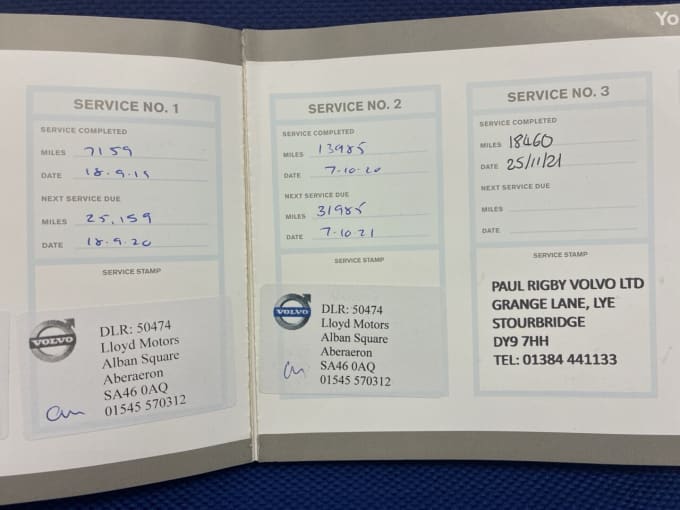 Yo
SERVICE NO. 1
SERVICE COMPLETED
MILES 7159
DATE 18.9.19
NEXT SERVICE DUE
MILES 25,159
DATE 18.9.20
SERVICE STAMP
VOLVO
DLR: 50474
Lloyd Motors
Alban Square
Aberaeron
SA46 0AQ
01545 570312
SERVICE NO. 2
SERVICE COMPLETED
MILES 13985
DATE 7-10-20
NEXT SERVICE DUE
MILES 31985
DATE 7-10 21
SERVICE STAMP
VOLVO
DLR: 50474
Lloyd Motors
Alban Square
Aberaeron
SA46 0AQ
01545 570312
SERVICE NO. 3
SERVICE COMPLETED
MILES 18460
DATE 25/11/21
NEXT SERVICE DUE
MILES
DATE
SERVICE STAMP
PAUL RIGBY VOLVO LTD
GRANGE LANE, LYE
STOURBRIDGE
DY9 7HH
TEL: 01384 441133